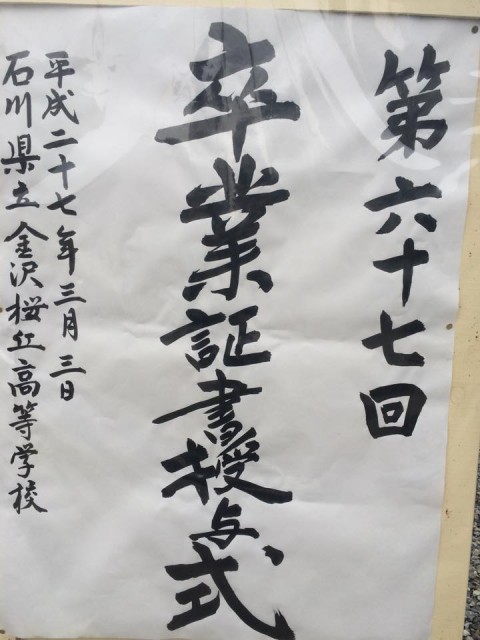 第六十七回
卒業証書授与式
平成二十七年三月三日
石川県立金沢桜丘高等学校